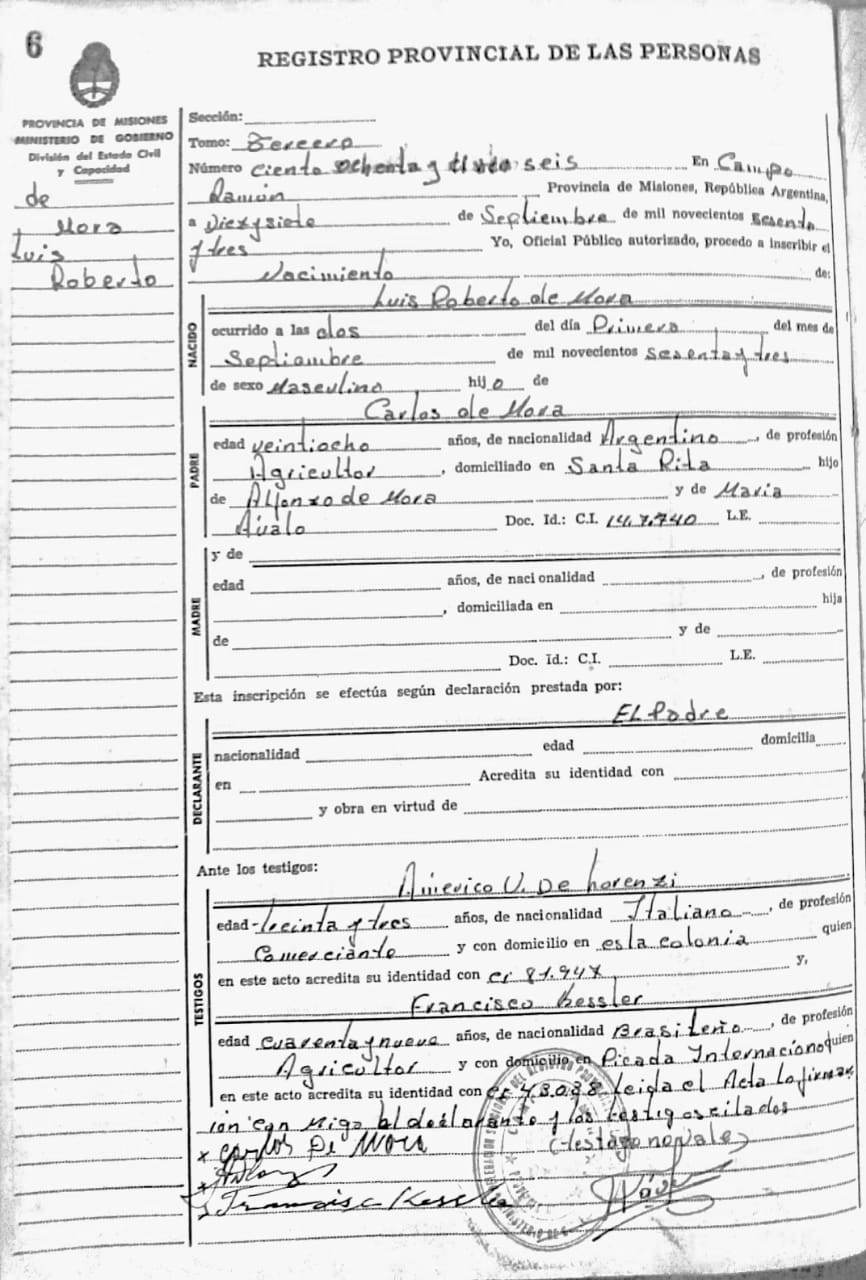 6
REGISTRO PROVINCIAL DE LAS PERSONAS
PROVINCIA DE MISIONES
MINISTERIO DE GOBIERNO
División del Estado Civil
y Capacidad
de
Mora
Luis
Roberto
Sección:
Tomo: Tercero
Número Ciento ochenta y seis En Campo
Ramón Provincia de Misiones, República Argentina,
a Diezysiete de Septiembre de mil novecientos Sesenta
y tres Yo, Oficial Público autorizado, procedo a inscribir el
Nacimiento de:
NACIDO
Luis Roberto de Mora
ocurrido a las dos del día Primero del mes de
Septiembre de mil novecientos Sesenta y tres
de sexo Masculino hijo de
PADRE
Carlos de Mora
edad veintiocho años, de nacionalidad Argentino, de profesión
Agricultor, domiciliado en Santa Rita hijo
de Alfonzo de Mora y de Maria
Avalo Doc. Id.: C.I. 147.740 L.E.
MADRE
y de
edad años, de nacionalidad , de profesión
, domiciliada en hija
de y de
Doc. Id.: C.I. L.E.
Esta inscripción se efectúa según declaración prestada por:
El Padre
DECLARANTE
nacionalidad edad domicilia
en Acredita su identidad con
y obra en virtud de
Ante los testigos:
TESTIGOS
Americo V. De Lorenzi
edad treinta y tres años, de nacionalidad Italiano, de profesión
Comerciante y con domicilio en esta colonia quien
en este acto acredita su identidad con ci 81.947 y,
Francisco Kessler
edad cuarenta y nueve años, de nacionalidad Brasileño, de profesión
Agricultor y con domicilio en Picada Internacional quien
en este acto acredita su identidad con ci 43.038 leida el Acta la firman
con migo el declarante y los testigos citados
x Carlos De Mora (testado no vale)
x
x Francisco Kessler